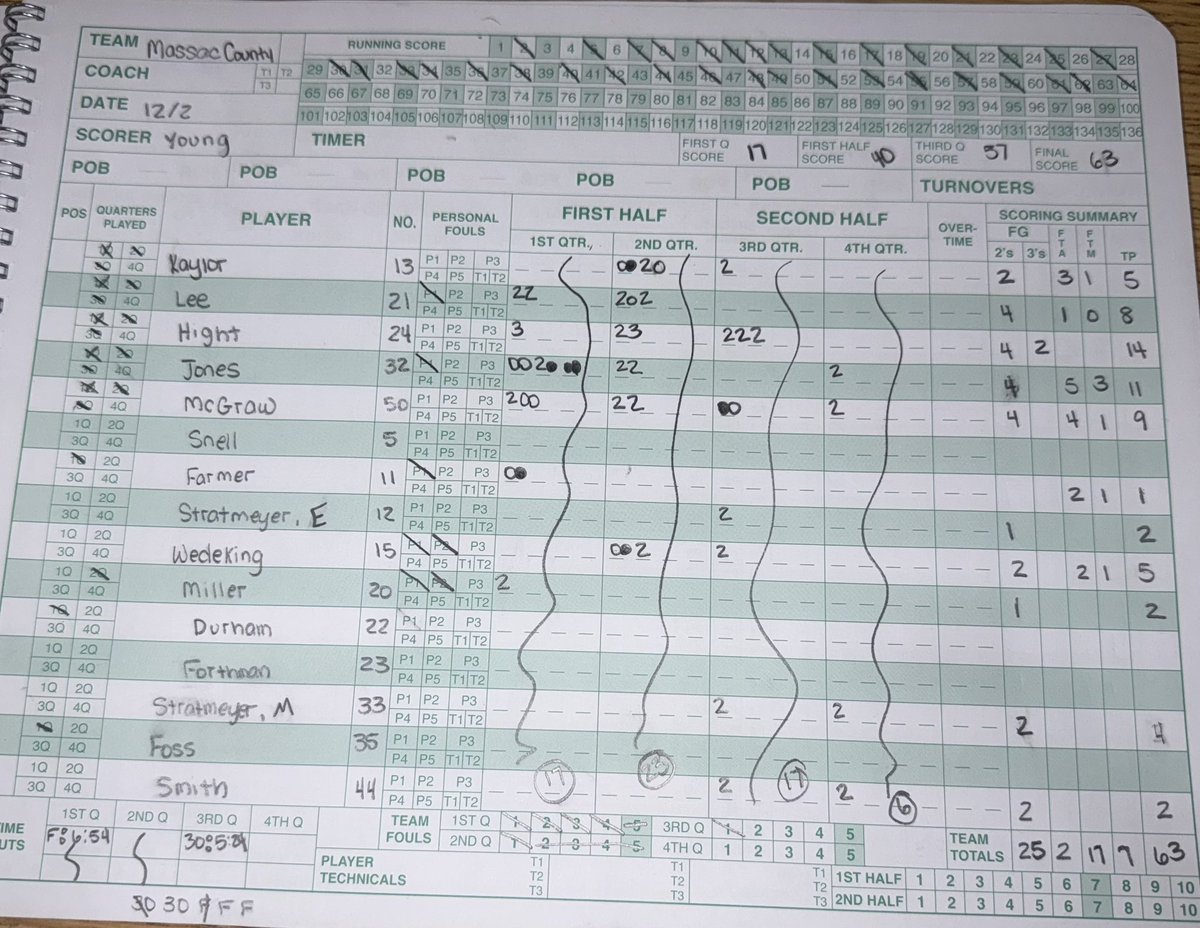 TEAM Massac County RUNNING SCORE 1 2 3 4 5 6 7 8 9 10 11 12 13 14 15 16 17 18 19 20 21 22 23 24 25 26 27 28
COACH T1 T2 T3 29 30 31 32 33 34 35 36 37 38 39 40 41 42 43 44 45 46 47 48 49 50 51 52 53 54 55 56 57 58 59 60 61 62 63 64
65 66 67 68 69 70 71 72 73 74 75 76 77 78 79 80 81 82 83 84 85 86 87 88 89 90 91 92 93 94 95 96 97 98 99 100
DATE 12/2 101 102 103 104 105 106 107 108 109 110 111 112 113 114 115 116 117 118 119 120 121 122 123 124 125 126 127 128 129 130 131 132 133 134 135 136
SCORER Young TIMER FIRST Q SCORE 17 FIRST HALF SCORE 40 THIRD Q SCORE 57 FINAL SCORE 63
POB POB POB POB POB TURNOVERS
POS QUARTERS PLAYED PLAYER NO. PERSONAL FOULS FIRST HALF SECOND HALF OVER-TIME SCORING SUMMARY
1ST QTR. 2ND QTR. 3RD QTR. 4TH QTR. FG 2's 3's FTA FTM TP
4Q Kaylor 13 P1 P2 P3 P4 P5 T1 T2 0020 2 2 3 1 5
4Q Lee 21 P1 P2 P3 P4 P5 T1 T2 22 202 4 1 0 8
3Q 4Q Hight 24 P1 P2 P3 P4 P5 T1 T2 3 23 222 4 2 14
4Q Jones 32 P1 P2 P3 P4 P5 T1 T2 0020 00 22 2 4 5 3 11
4Q McGraw 50 P1 P2 P3 P4 P5 T1 T2 200 22 00 2 4 4 1 9
1Q 2Q 3Q 4Q Snell 5 P1 P2 P3 P4 P5 T1 T2
1Q 2Q 3Q 4Q Farmer 11 P1 P2 P3 P4 P5 T1 T2 00 2 1 1
1Q 2Q 3Q 4Q Stratmeyer, E 12 P1 P2 P3 P4 P5 T1 T2 2 1 2
1Q 2Q 3Q 4Q Wedeking 15 P1 P2 P3 P4 P5 T1 T2 002 2 2 2 1 5
1Q 2Q 3Q 4Q Miller 20 P1 P2 P3 P4 P5 T1 T2 2 1 2
1Q 2Q 3Q 4Q Durham 22 P1 P2 P3 P4 P5 T1 T2
1Q 2Q 3Q 4Q Forthman 23 P1 P2 P3 P4 P5 T1 T2
1Q 2Q 3Q 4Q Stratmeyer, M 33 P1 P2 P3 P4 P5 T1 T2 2 2 2 4
1Q 2Q 3Q 4Q Foss 35 P1 P2 P3 P4 P5 T1 T2
1Q 2Q 3Q 4Q Smith 44 P1 P2 P3 P4 P5 T1 T2 17 23 2 17 2 6 2 2
1ST Q 2ND Q 3RD Q 4TH Q TEAM FOULS 1ST Q 1 2 3 4 5 3RD Q 1 2 3 4 5
F:6:54 30:5:21 2ND Q 1 2 3 4 5 4TH Q 1 2 3 4 5 TEAM TOTALS 25 2 17 7 63
PLAYER TECHNICALS T1 T2 T3 T1 T2 T3 T1 T2 T3 1ST HALF 1 2 3 4 5 6 7 8 9 10
2ND HALF 1 2 3 4 5 6 7 8 9 10
30 30 F F F